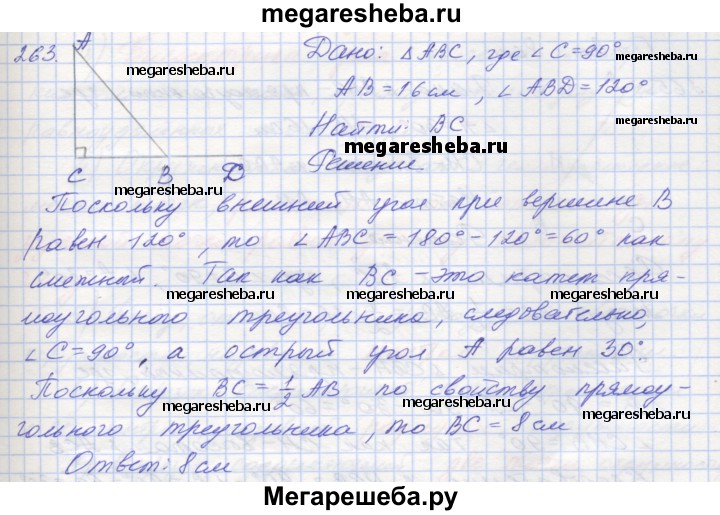 megaresheba.ru
263.
A
C В D
Дано: △ABC, где ∠C=90°
AB=16см, ∠ABD=120°
megaresheba.ru
megaresheba.ru
Найти: BC
megaresheba.ru
Решение
megaresheba.ru
Поскольку внешний угол при вершине В
megaresheba.ru megaresheba.ru
равен 120°, то ∠ABC = 180°-120°=60° как
смежный. Так как BC - это катет пря-
megaresheba.ru megaresheba.ru megaresheba.ru
моугольного треугольника, следовательно,
∠C=90°, а острый угол А равен 30°.
megaresheba.ru megaresheba.ru
Поскольку BC=1/2 AB по свойству прямоу-
megaresheba.ru megaresheba.ru
гольного треугольника, то BC = 8см
Ответ: 8см
megaresheba.ru
Мегарешеба.ру